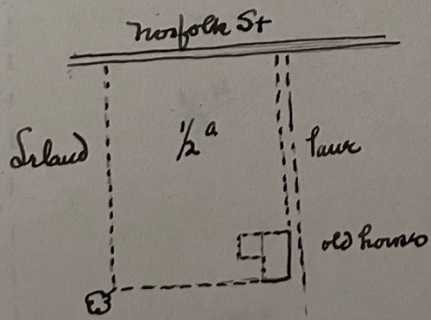 Norfolk St
Ireland
½ a
lane
old homes